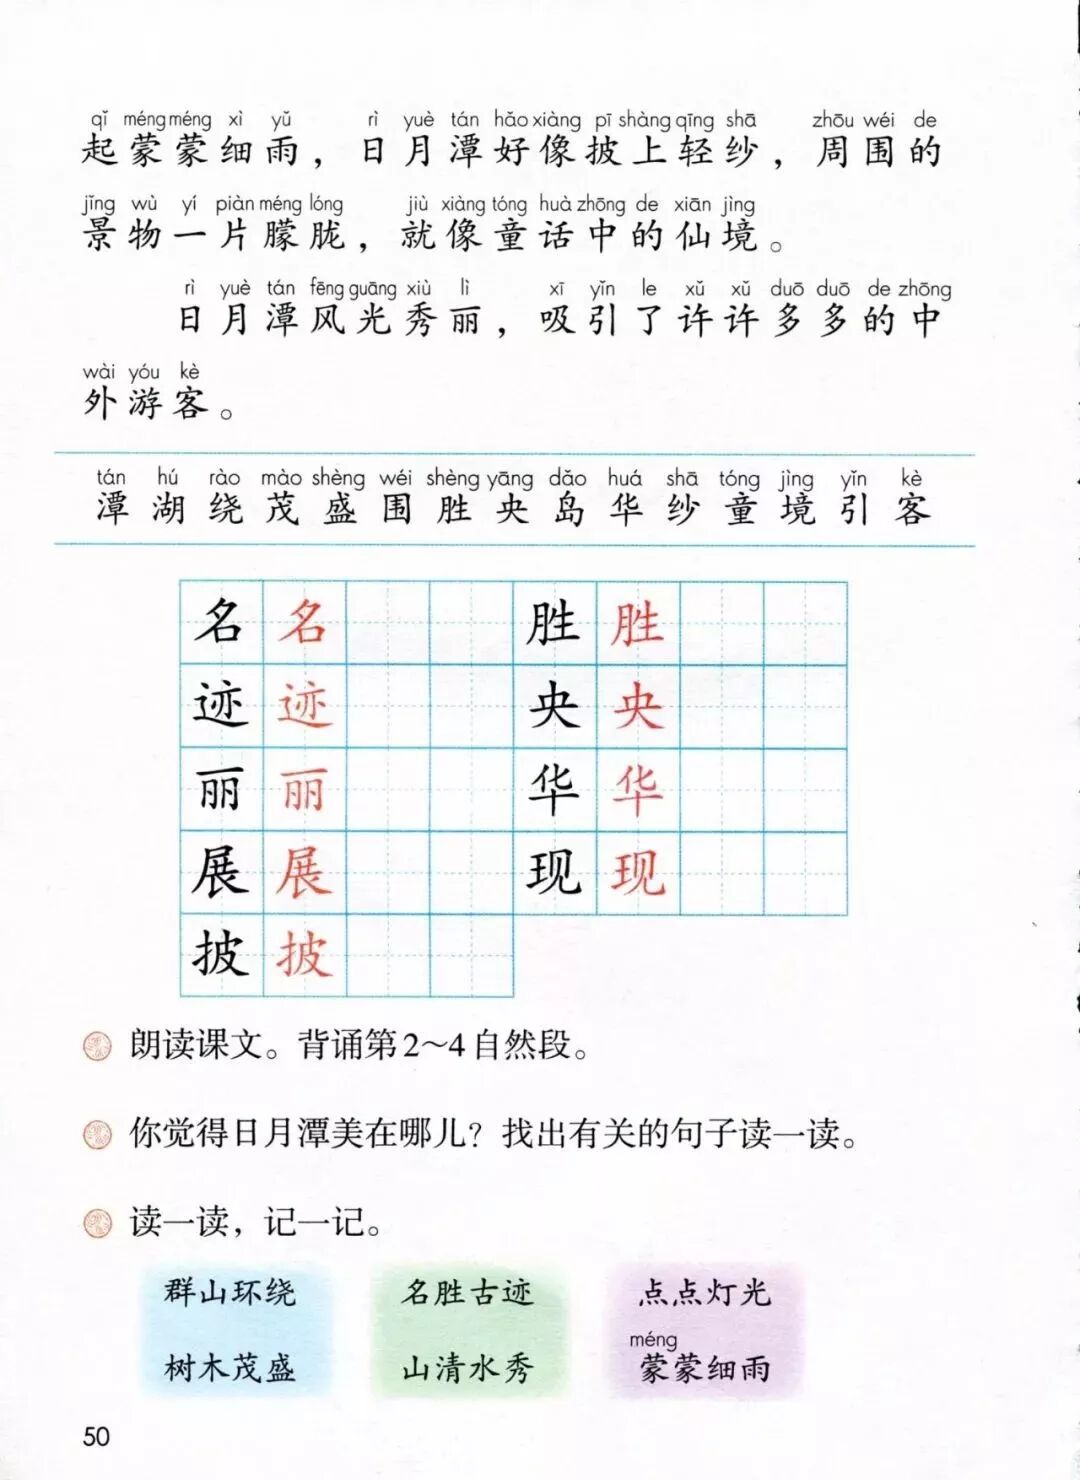 qǐ méng méng xì yǔ rì yuè tán hǎo xiàng pī shàng qīng shā zhōu wéi de
起蒙蒙细雨，日月潭好像披上轻纱，周围的
jǐng wù yí piàn méng lóng jiù xiàng tóng huà zhōng de xiān jìng
景物一片朦胧，就像童话中的仙境。
rì yuè tán fēng guāng xiù lì xī yǐn le xǔ xǔ duō duō de zhōng
日月潭风光秀丽，吸引了许许多多的中
wài yóu kè
外游客。
tán hú rào mào shèng wéi shèng yāng dǎo huá shā tóng jìng yǐn kè
潭湖绕茂盛围胜央岛华纱童境引客
名 名 胜 胜
迹 迹 央 央
丽 丽 华 华
展 展 现 现
披 披
朗读课文。背诵第2～4自然段。
你觉得日月潭美在哪儿？找出有关的句子读一读。
读一读，记一记。
群山环绕 名胜古迹 点点灯光
méng
树木茂盛 山清水秀 蒙蒙细雨
50